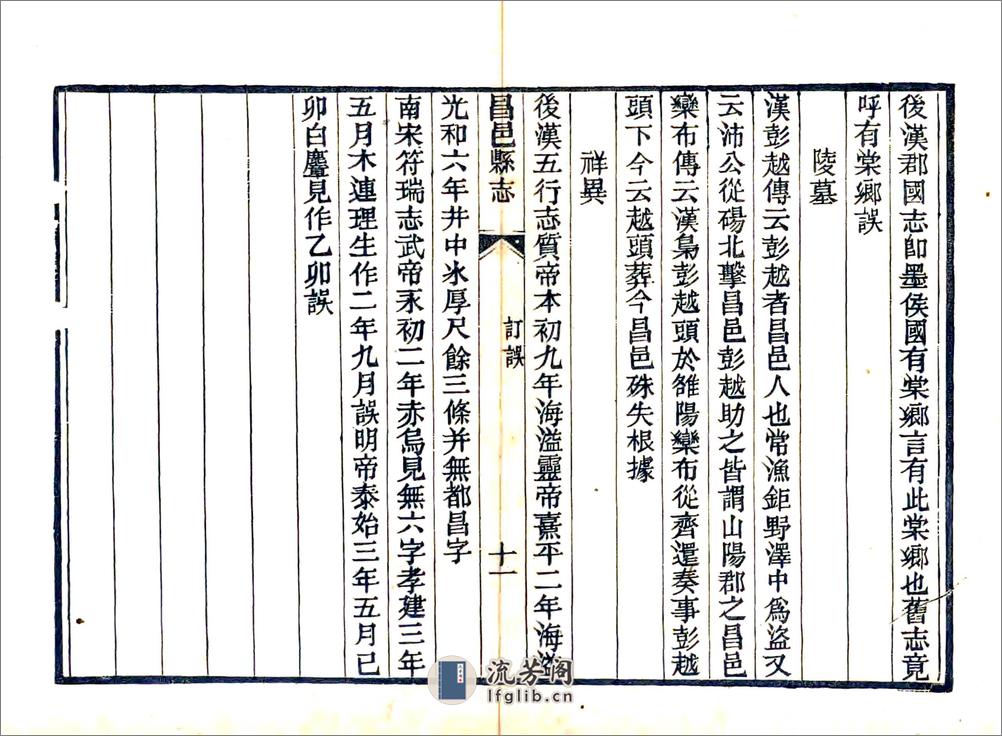 後漢郡國志卽墨侯國有棠鄉言有此棠鄉也舊志竟
呼有棠鄉誤
陵墓
漢彭越傳云彭越者昌邑人也常漁鉅野澤中爲盜又
云沛公從碭北擊昌邑彭越助之皆謂山陽郡之昌邑
欒布傳云漢梟彭越頭於雒陽欒布從齊還奏事彭越
頭下今云越頭葬今昌邑殊失根據
祥異
後漢五行志質帝本初九年海溢靈帝熹平二年海溢
昌邑縣志
訂誤
十一
光和六年井中氷厚尺餘三條并無都昌字
南宋符瑞志武帝永初二年赤烏見無六字孝建三年
五月木連理生作二年九月誤明帝泰始三年五月己
卯白麞見作乙卯誤
流芳閣
lfglib.cn